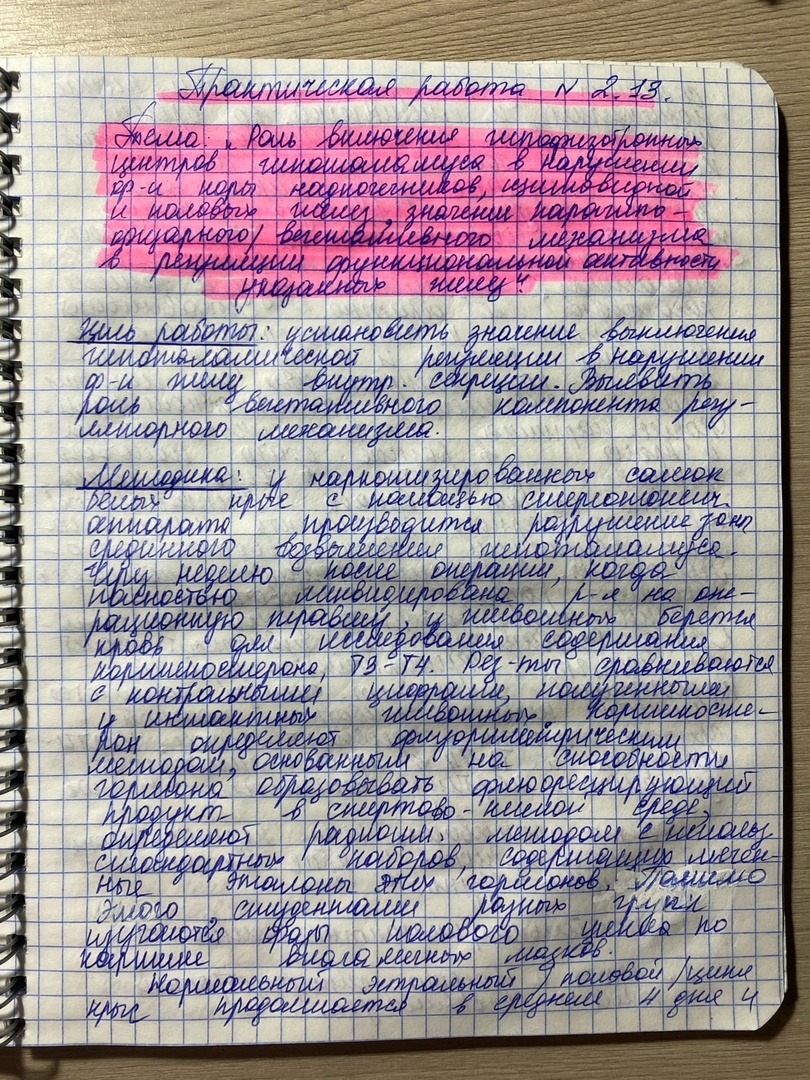 Практическая работа N 2.13.
Тема: „Роль включения гипофизотропных
центров гипоталамуса в нарушении
ф-и коры надпочечников, щитовидной
и половых желез, значение парагипо-
физарного/вегетативного механизма
в регуляции функциональной активности
указанных желез"
Цель работы: установить значение выключения
гипоталамической регуляции в нарушении
ф-и желез внутр. секреции. Выявить
роль вегетативного компонента регу-
ляторного механизма.
Методика: у наркотизированных самок
белых крыс с помощью стереотаксич.
аппарата производится разрушение зоны
срединного возвышения гипоталамуса.
Через неделю после операции, когда
полностью ликвидирована р-я на опе-
рационную травму, у животных берется
кровь для исследования содержания
кортикостерона, Т3-Т4. Рез-ты сравниваются
с контрольными цифрами, полученными
у интактных животных. Кортикосте-
рон определяют флуориметрическим
методом, основанным на способности
гормона образовывать флюоресцирующий
продукт в спиртово-кислой среде,
определяют радиоимм. методом с использ.
стандартных наборов, содержащих мечен-
ные эталоны этих гормонов. Помимо
этого студентами разных групп
изучаются фазы полового цикла по
картине влагалищных мазков.
Нормальный эстральный /половой/ цикл
крыс продолжается в среднем 4 дня и